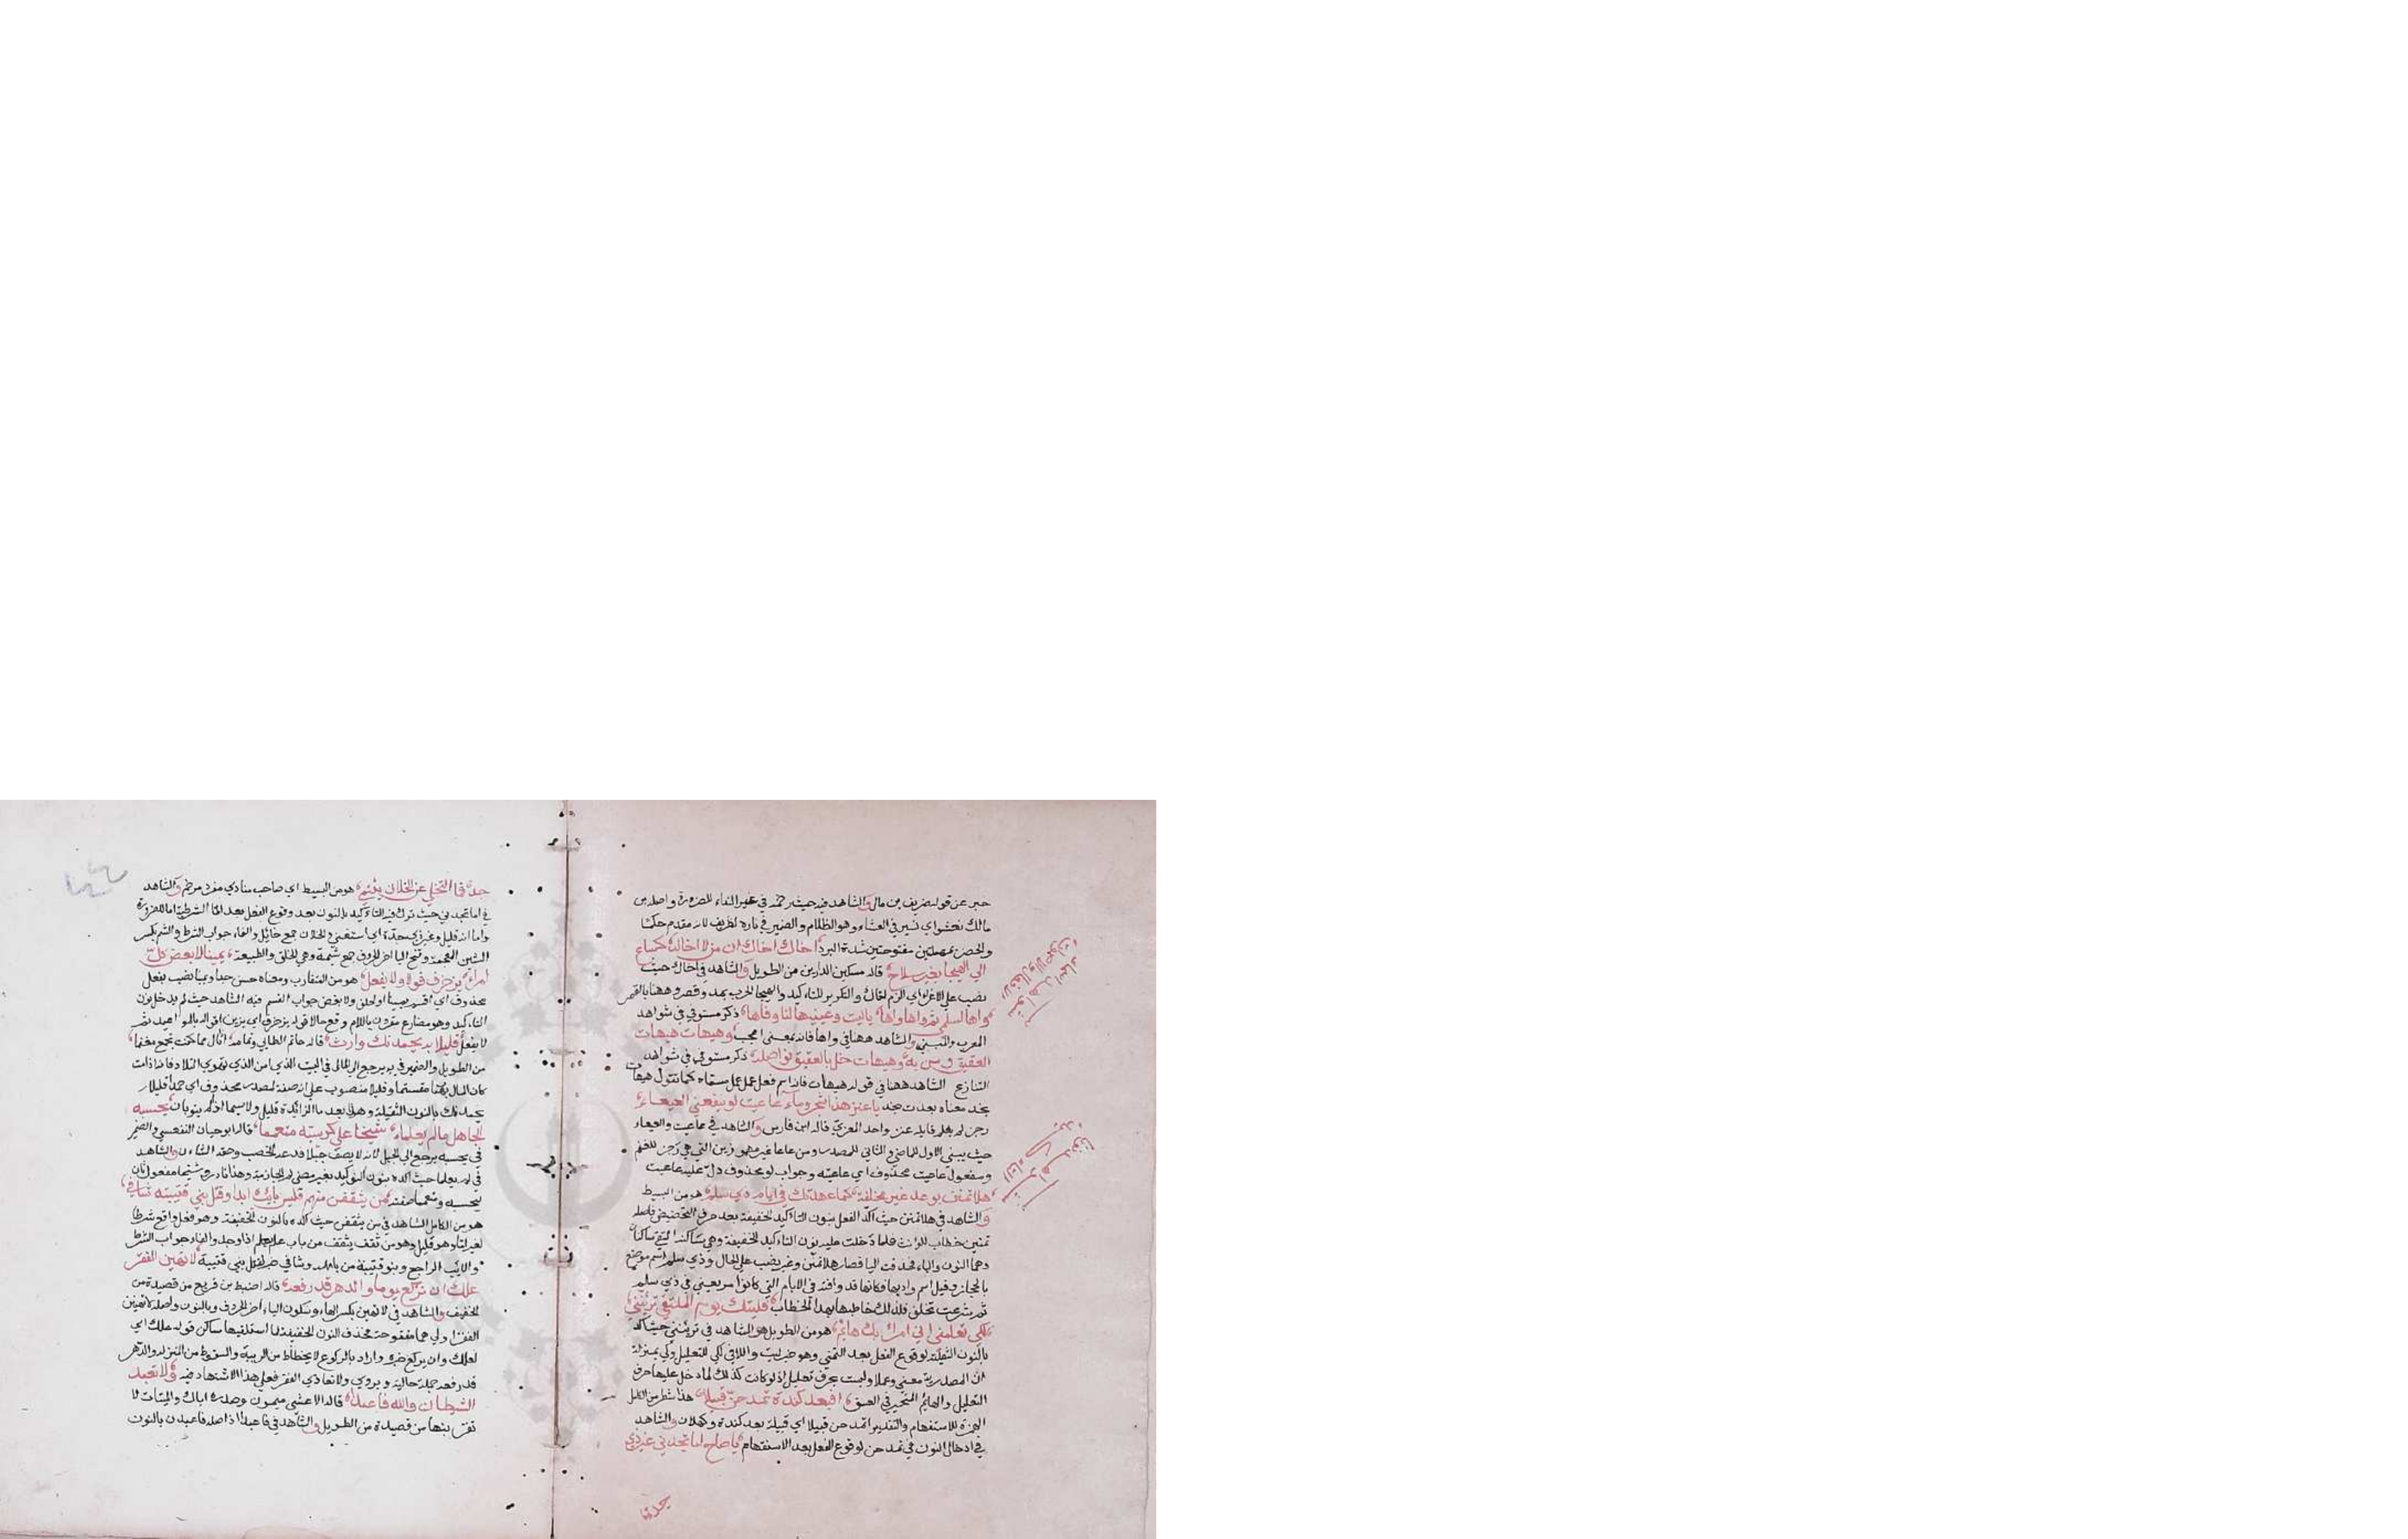 خبر عن قوله ضريف بن مال والشاهد فيه حيث رخمه في غير النداء للضرورة واصله بن
مالك تعشواي تسير في العشاء وهو الظلام والضمير في ناره لطريف لانه مقدم حكما
والخصر بمهملتين مفتوحتين شدة البرد اخاك اخاك ان من لا اخاله كساع
الي الهيجا بغير سلاح قاله مسكين الدارمي من الطويل والشاهد في اخاك حيث
نصب علي الاغراء اي الزم اخاك والتكرير للتاكيد والهيجا الحرب يمد وقصر وههنا بالقصر
واها لسلمي ثم واها واها ياليت وعينيها لنا وفاها ذكر مستوفي في شواهد
المعرب والمبني والشاهد ههنا في واها فانه بمعني اعجب وهيهات هيهات
العقيق ومن به وهيهات خل بالعقيق نواصله ذكر مستوفي في شواهد
التنازع الشاهد ههنا في قوله هيهات فانه اسم فعل عمل عمل مسماه كما تقول هيهات
نجد معناه بعدت نجد ياعنز هذا شجر وماء عاعيت لو ينفعني العيعاء
رجز لم يعلم قايله عنز واحد المعزي قاله ابن فارس والشاهد في عاعيت والعيعاء
حيث يبني الاول للماضي والثاني للمصدر ومن عاعا غير مهموزين التي هي زجر للغنم
ومفعول عاعيت محذوف اي عاعيته وجواب لو محذوف دل عليه عاعيت
هلا تمنن بوعد غير مخلفة كما عهدتك في ايام ذي سلم هو من البسيط
والشاهد في هلا تمنن حيث اكد الفعل بنون التاكيد الخفيفة بعد حرف التحضيض واصله
تمنين خطاب للمؤنث فلما دخلت عليه نون التاكيد الخفيفة وهي ساكنة التقي ساكنان
وهما النون والياء فحذفت اليا فصار هلا تمنن وغير نصب علي الحال وذي سلم اسم موضع
بالحجاز وقيل اسم واد بها فكانها قد وافته في الايام التي كانوا مربعين في ذي سلم
ثم شرعت تخلف فلذلك خاطبها بهذا الخطاب فليتك يوم الملتقي ترينني
لكي تعلمي اني امرؤ بك هايم هو من الطويل والشاهد في ترينني حيث اكد
بالنون الثقيلة لوقوع الفعل بعد التمني وهو خبر ليت واللام في لكي للتعليل وكي بمنزلة
ان المصدرية معني وعملا وليست بحرف تعليل اذ لو كانت كذلك لما دخل عليها حرف
التعليل والهايم المتحير في العشق افبعد كندة تمدحن قبيلا هذا شطر من الكامل
الهمزة للاستفهام والتقدير اتمدحن قبيلا اي قبيلة بعد كندة وكهلان والشاهد
في ادخال النون في تمدحن لوقوع الفعل بعد الاستفهام ياصاح اما تجدني غير ذي
جدة فما
شواهد اسماء
الافعال والاصوات
شواهد نونا
التاكيد
جدة فما التخلي عن الخلان من شيمي هو من البسيط اي صاحب منادي مفرد مرخم والشاهد
في اما تجدني حيث ترك فيه التاكيد بالنون بعد وقوع الفعل بعد اما الشرطية اما للضرورة
واما انه قليل وغير ذي جدة اي استغني والخلان جمع خليل والفاء جواب الشرط والشيم بكسر
الشين المعجمة وفتح اليا اخر الحروف جمع شيمة وهي الخلق والطبيعة يمينا لابغض كل
امرئ يزخرف قولا ولا يفعل هو من المتقارب ومعناه حسن جدا ويمينا نصب بفعل
محذوف اي اقسم يمينا او احلف ولابغض جواب القسم فيه الشاهد حيث لم يدخل نون
التاكيد وهو مضارع مقرون باللام وقع حالا قوله يزخرف اي يزين اقواله بالمواعيد ثم
لا يفعل قليلا به يحمدنك وارث قاله حاتم الطايي وتمامه اذا نال مما كنت تجمع مغنما
من الطويل والضمير في به يرجع الي المال في البيت الذي
كان المال نهبا مقسما وقليلا منصوب علي انه صفة لمصدر محذوف اي حمدا قليلا
يحمدنك بالنون الثقيلة وهو قليل بعد ما الزائدة قليل ولاسيما يحسبه
الجاهل مالم يعلما شيخا علي كرسيه معمما قاله ابو حيان الفقعسي والضمير
في يحسبه يرجع الي الجبل لانه يصف جبلا قد عمه الخصب وحفه النبات والشاهد
في لم يعلما حيث اكده بنون التوكيد بعد مضي لم الجازمة وهذا نادر وشيخا مفعول ثان
يحسبه ومعمما صفته من يثقفن منهم فليس بآيب ابدا وقتل بني قتيبة شافي
هو من الكامل الشاهد في من يثقفن حيث اكده بالنون الخفيفة وهو فعل واقع شرطا
لغير اما وهو قليل وهو من ثقف يثقف من باب علم يعلم اذا وجد والفاء جواب الشرط
والآيب الراجع وبنو قتيبة من باهلة وشافي خبر لقتل بني قتيبة لا تهين الفقير
علك ان تركع يوما والدهر قد رفعه قاله اضبط بن قريع من قصيدة من
الخفيف والشاهد في لا تهين بكسر الهاء وسكون الياء اخر الحروف وبالنون واصله لا تهينن
الفقير اولي هما مفتوحة فحذف النون الخفيفة لما استقبلها ساكن قوله علك اي
لعلك وان تركع خبره واراد بالركوع الانحطاط من الرتبة والسقوط من المنزلة والدهر
قد رفعه جملة حالية ويروي ولا تعادي الفقير فعلي هذا لا استشهاد فيه ولا تعبد
الشيطان والله فاعبدا قاله الاعشي ميمون وصدره اياك والميتات لا
تقربنها من قصيدة من الطويل والشاهد في فاعبدا اذ اصله فاعبدن بالنون